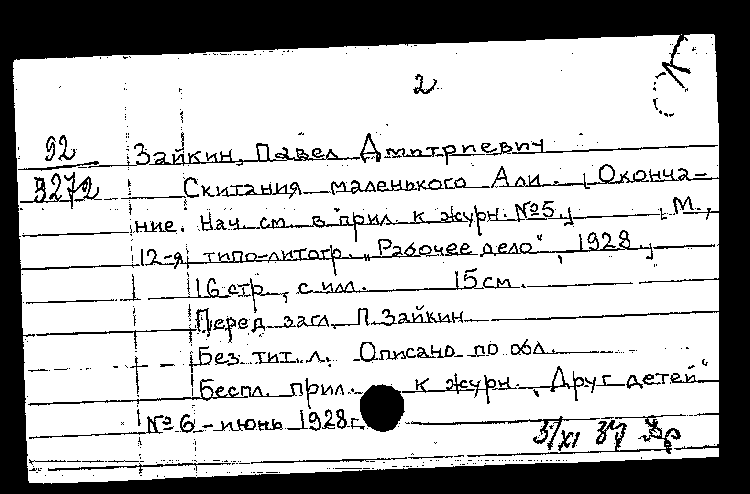 2
92 Зайкин, Павел Дмитриевич
3272 Скитания маленького Али. [Оконча-
ние. Нач. см. в прил. к журн. №5.] [М.,
12-я типо-литогр. „Рабочее дело“, 1928.]
16 стр., с илл. 15 см.
Перед загл. П. Зайкин
Без тит. л. Описано по обл.
Беспл. прил. к журн. „Друг детей“
№ 6 - июнь 1928 г.